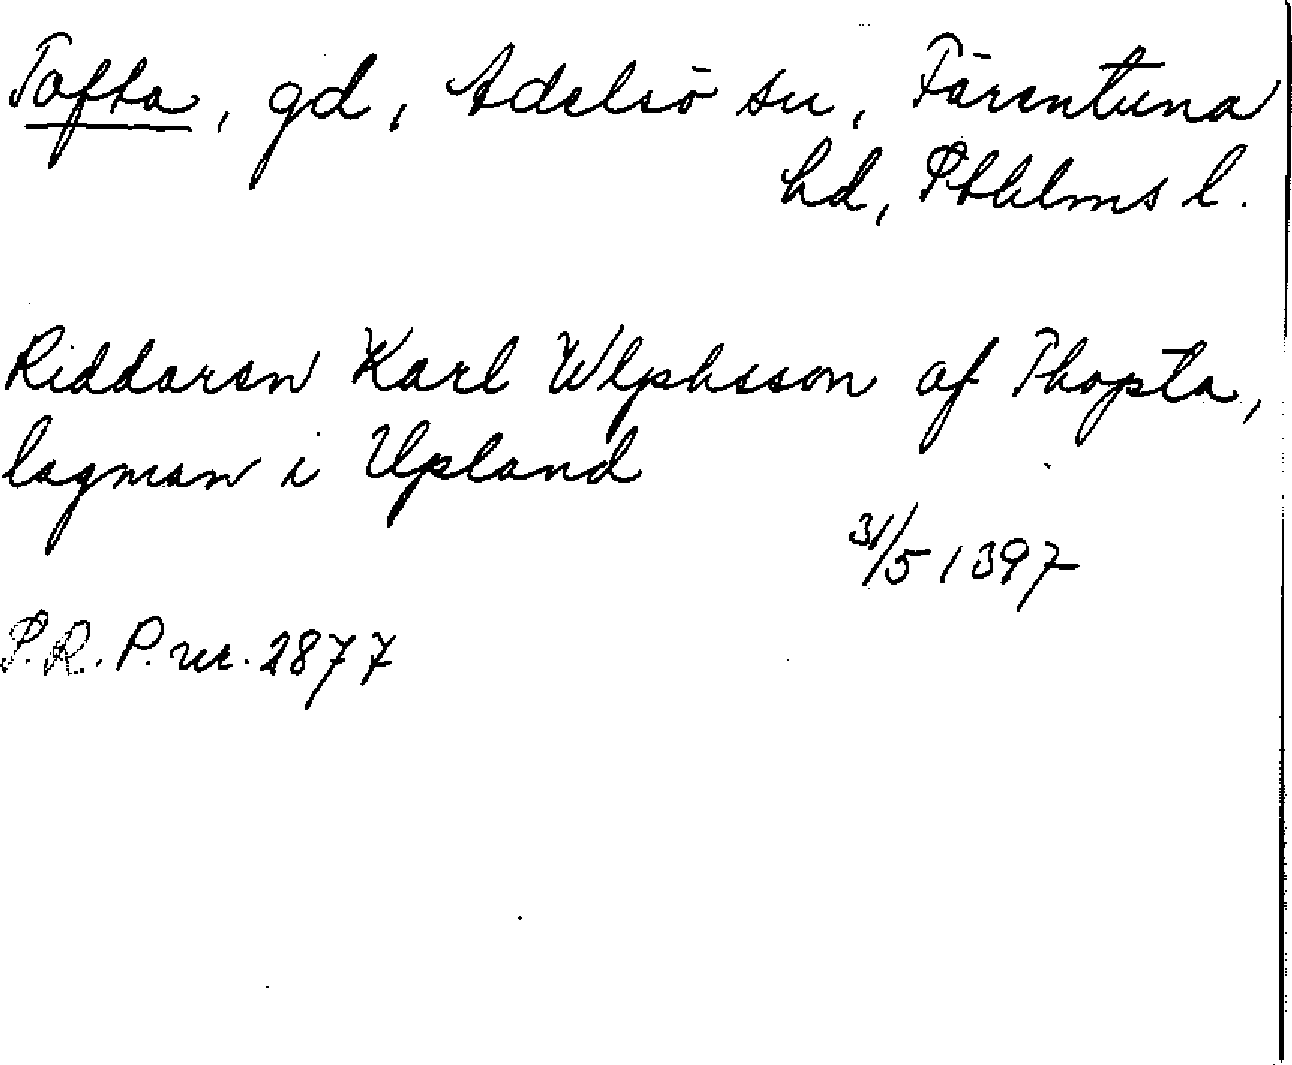 Tofta, gd, Adelsö sn, Färentuna
hd, Sthlms l.
Riddaren Karl Wlphsson af Thopta,
lagman i Upland
31/5 1397
S.R.P. nr. 2877